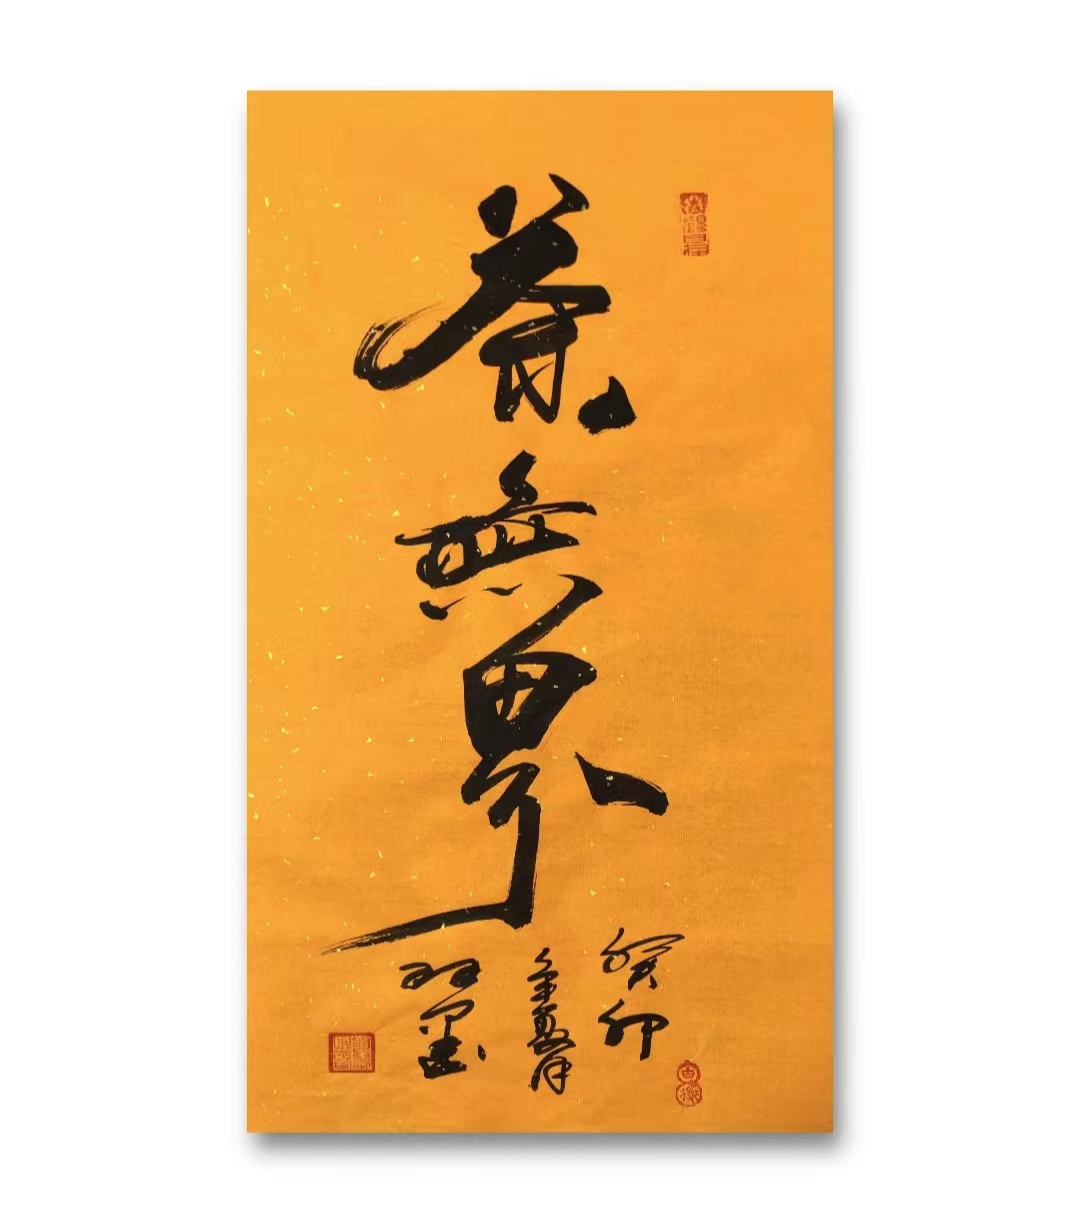 茶無界
癸卯
年夏月
羽墨